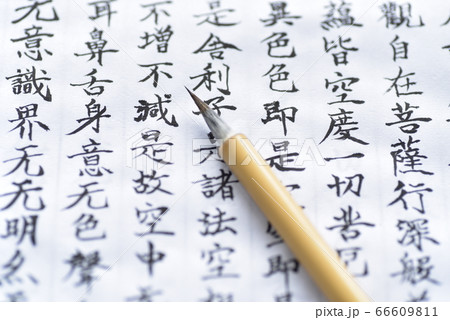 觀自在菩薩行深般
蘊皆空度一切苦厄
異色色即是空即是
是舍利子是諸法空
不增不減是故空中
耳鼻舌身意无色聲
无意識界无无明亦
pixta.jp - 66609811